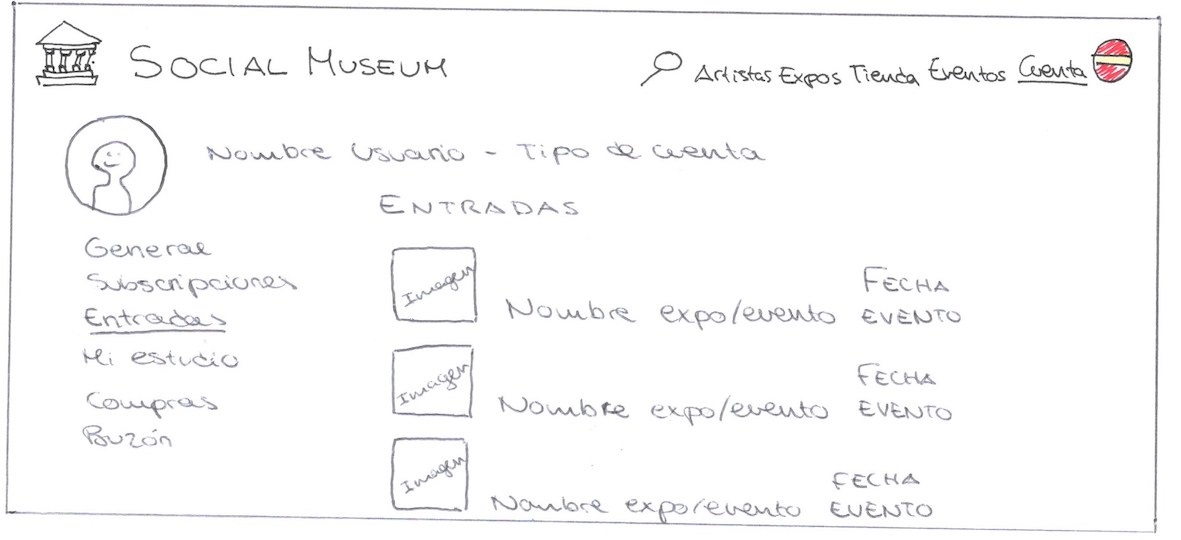 SOCIAL MUSEUM
Artistas Expos Tienda Eventos Cuenta
Nombre Usuario - Tipo de cuenta
ENTRADAS
General
Subscripciones
Entradas
Mi estudio
Compras
Buzón
Imagen
Nombre expo/evento
FECHA
EVENTO
Imagen
Nombre expo/evento
FECHA
EVENTO
Imagen
Nombre expo/evento
FECHA
EVENTO